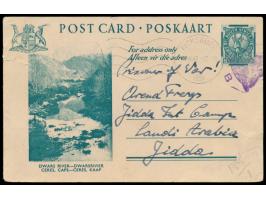 POST CARD · POSKAART
For address only
Alleen vir die adres
Prisoner of War!
Arend Frerys
Jidda Int Camp
Saudi Arabia
Jidda
DWARS RIVER—DWARSRIVIER
CERES, CAPE.—CERES, KAAP